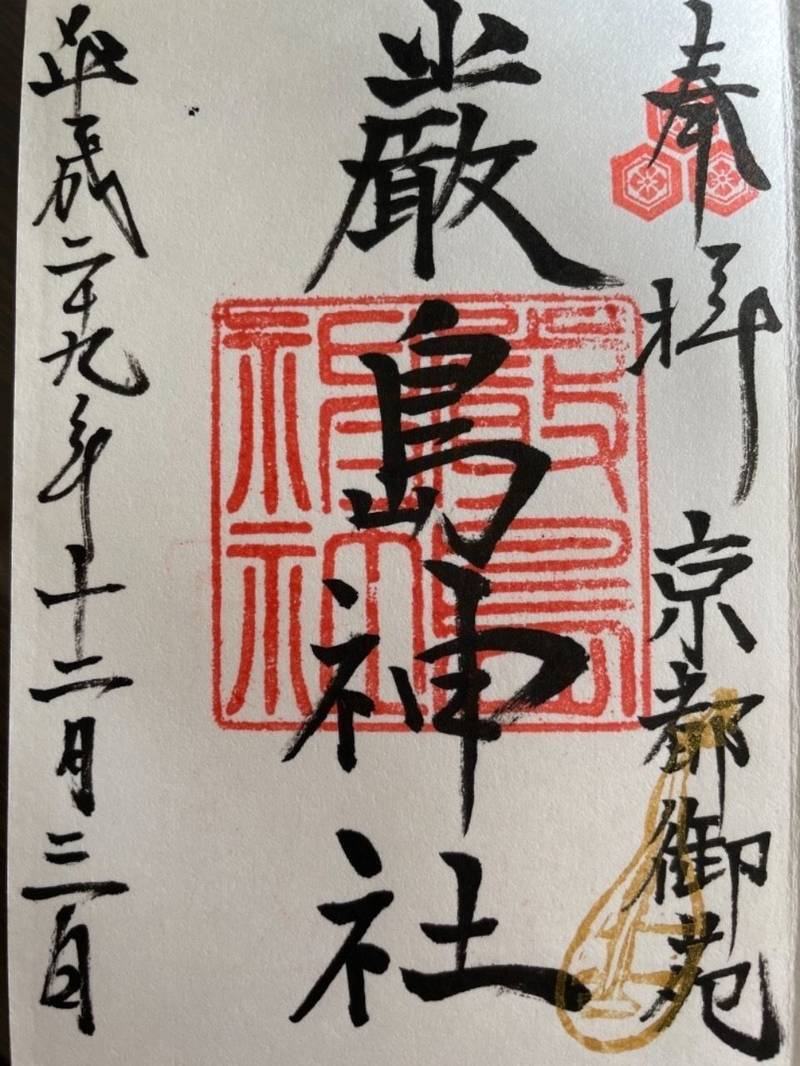 奉拝 京都御苑
厳島神社
平成二十九年十二月三日
嚴島神社